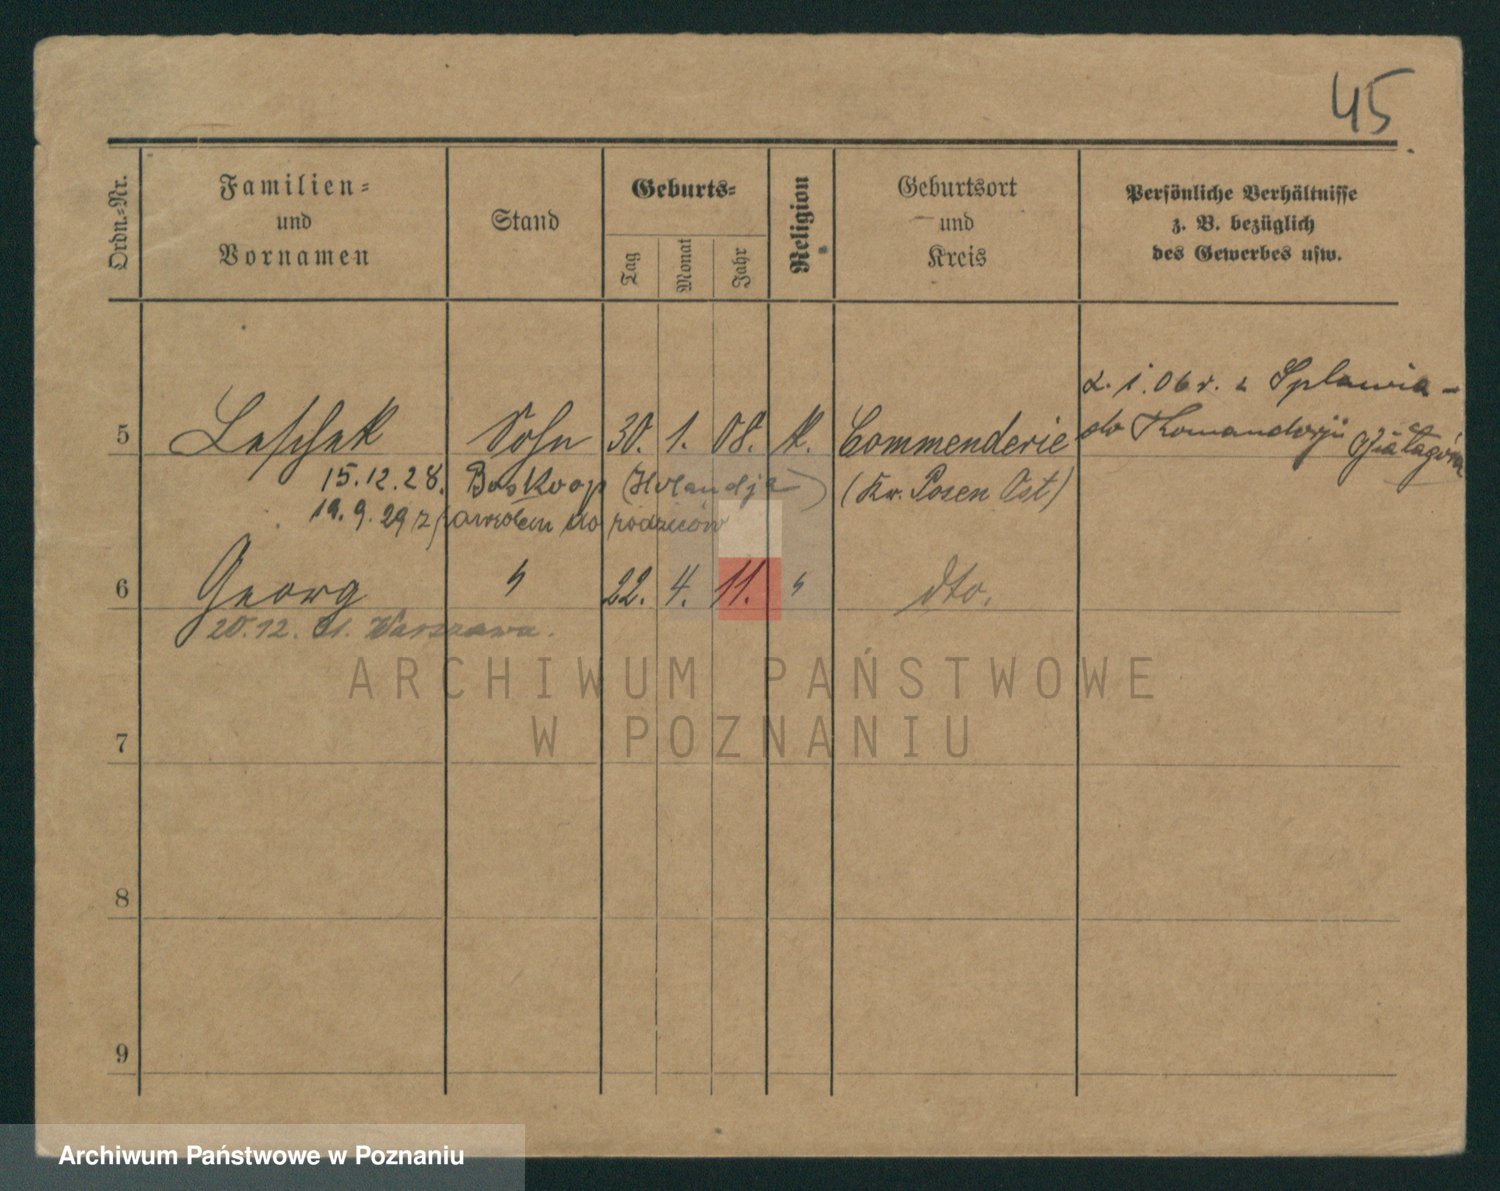 45
Ordn.-Nr.
Familien-
und
Vornamen
Stand
Geburts-
Tag
Monat
Jahr
Religion
Geburtsort
und
Kreis
Persönliche Verhältnisse
z. B. bezüglich
des Gewerbes usw.
2. 1. 06 r. z Splawia -
5 Leschek Sohn 30. 1. 08. k. Commenderie do Komandorji
15.12.28. Boskoop (Holandja) (Kr. Posen Ost)
19.9.29 z powrotem do rodziców
6 Georg " 22. 4. 11. " dto.
20.12. 31. Warszawa.
7
8
9
ARCHIWUM PAŃSTWOWE
W POZNANIU
Archiwum Państwowe w Poznaniu